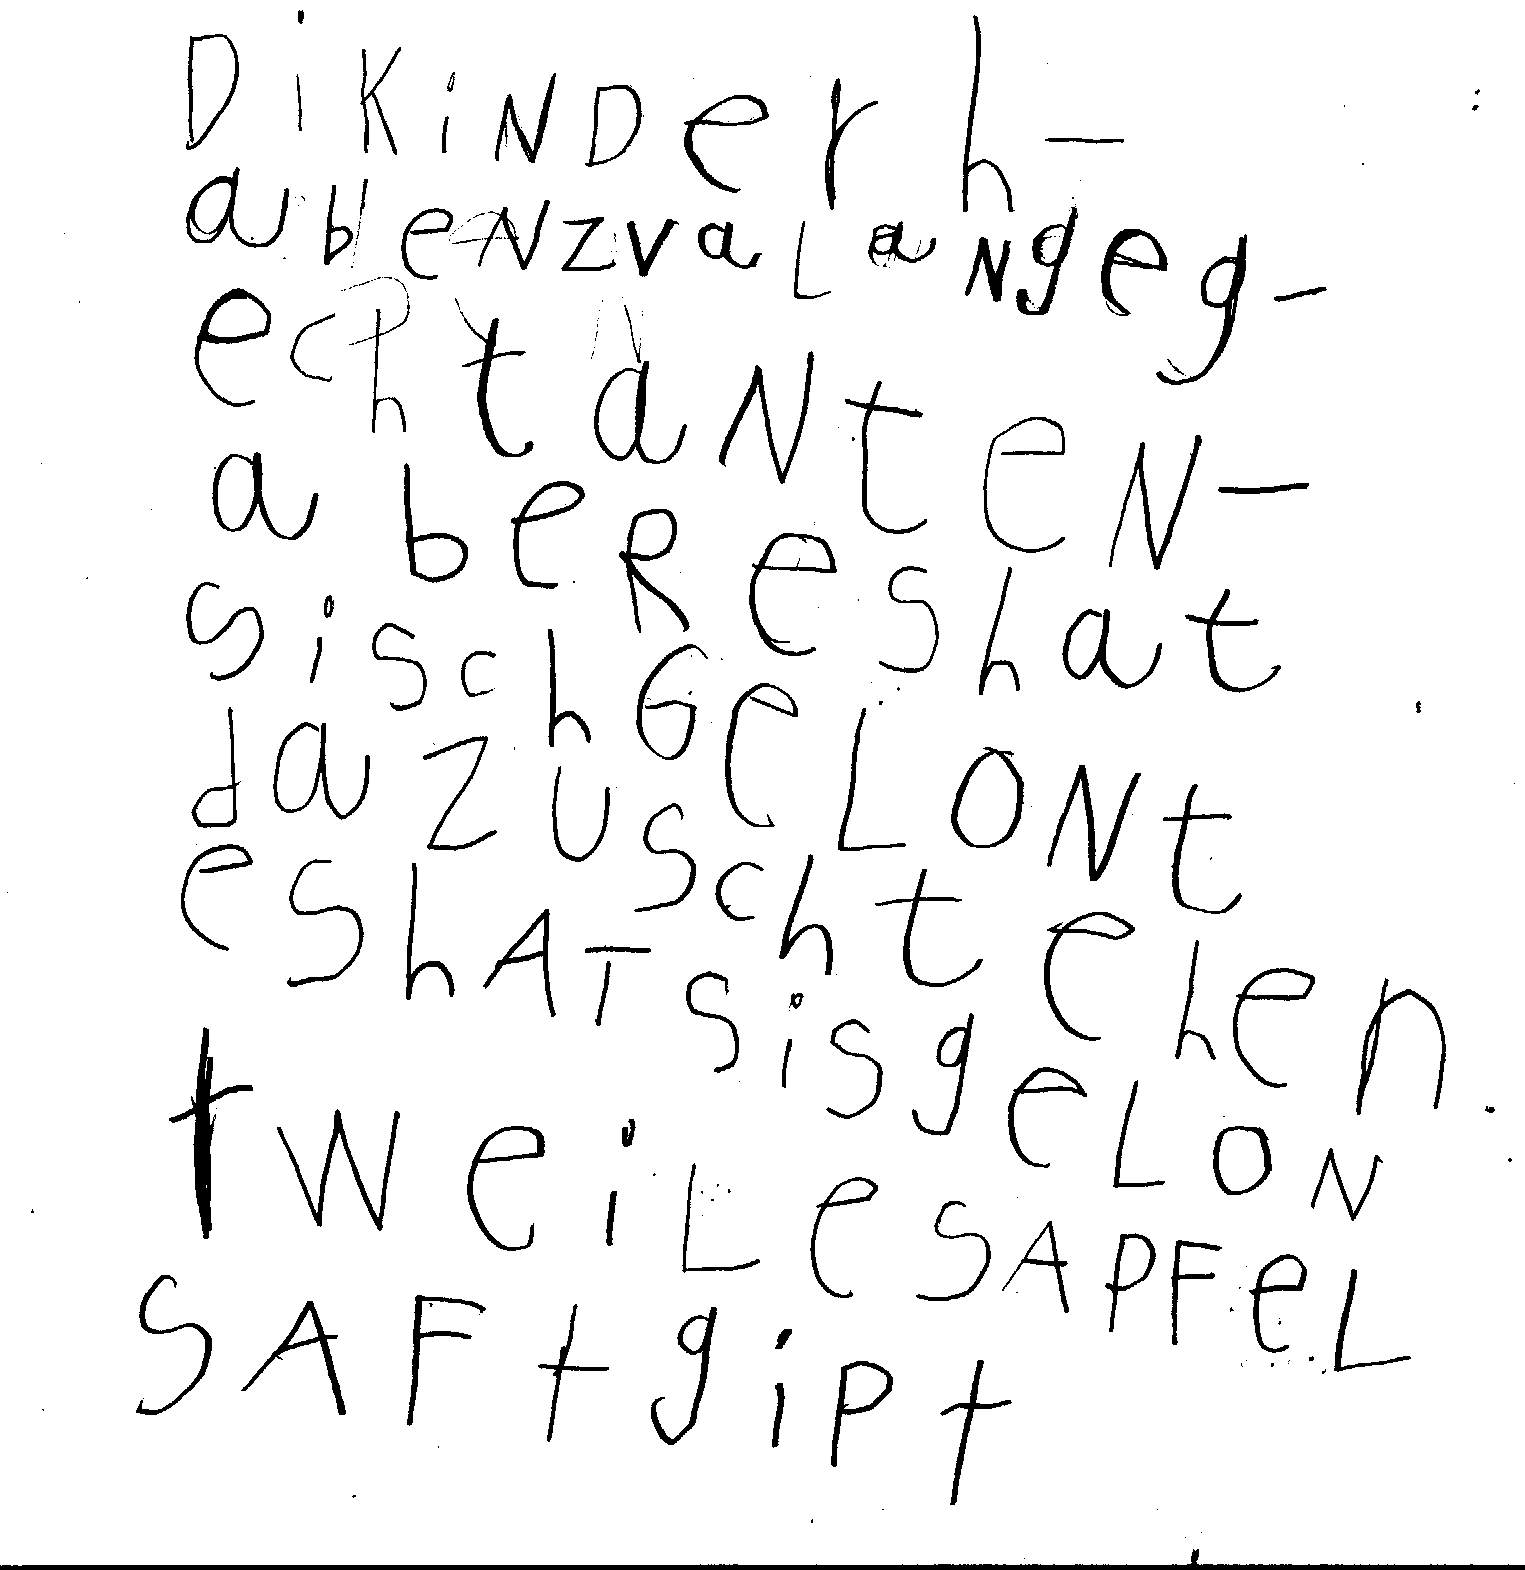 DiKiNDer h-
abeNzvaLaNgeg-
echtaNteN-
abeReshat
SiSchGeLONt
daZUSchtehen.
eShATSiSgeLON
tWeiLeSAPFeL
SAFtgiPt